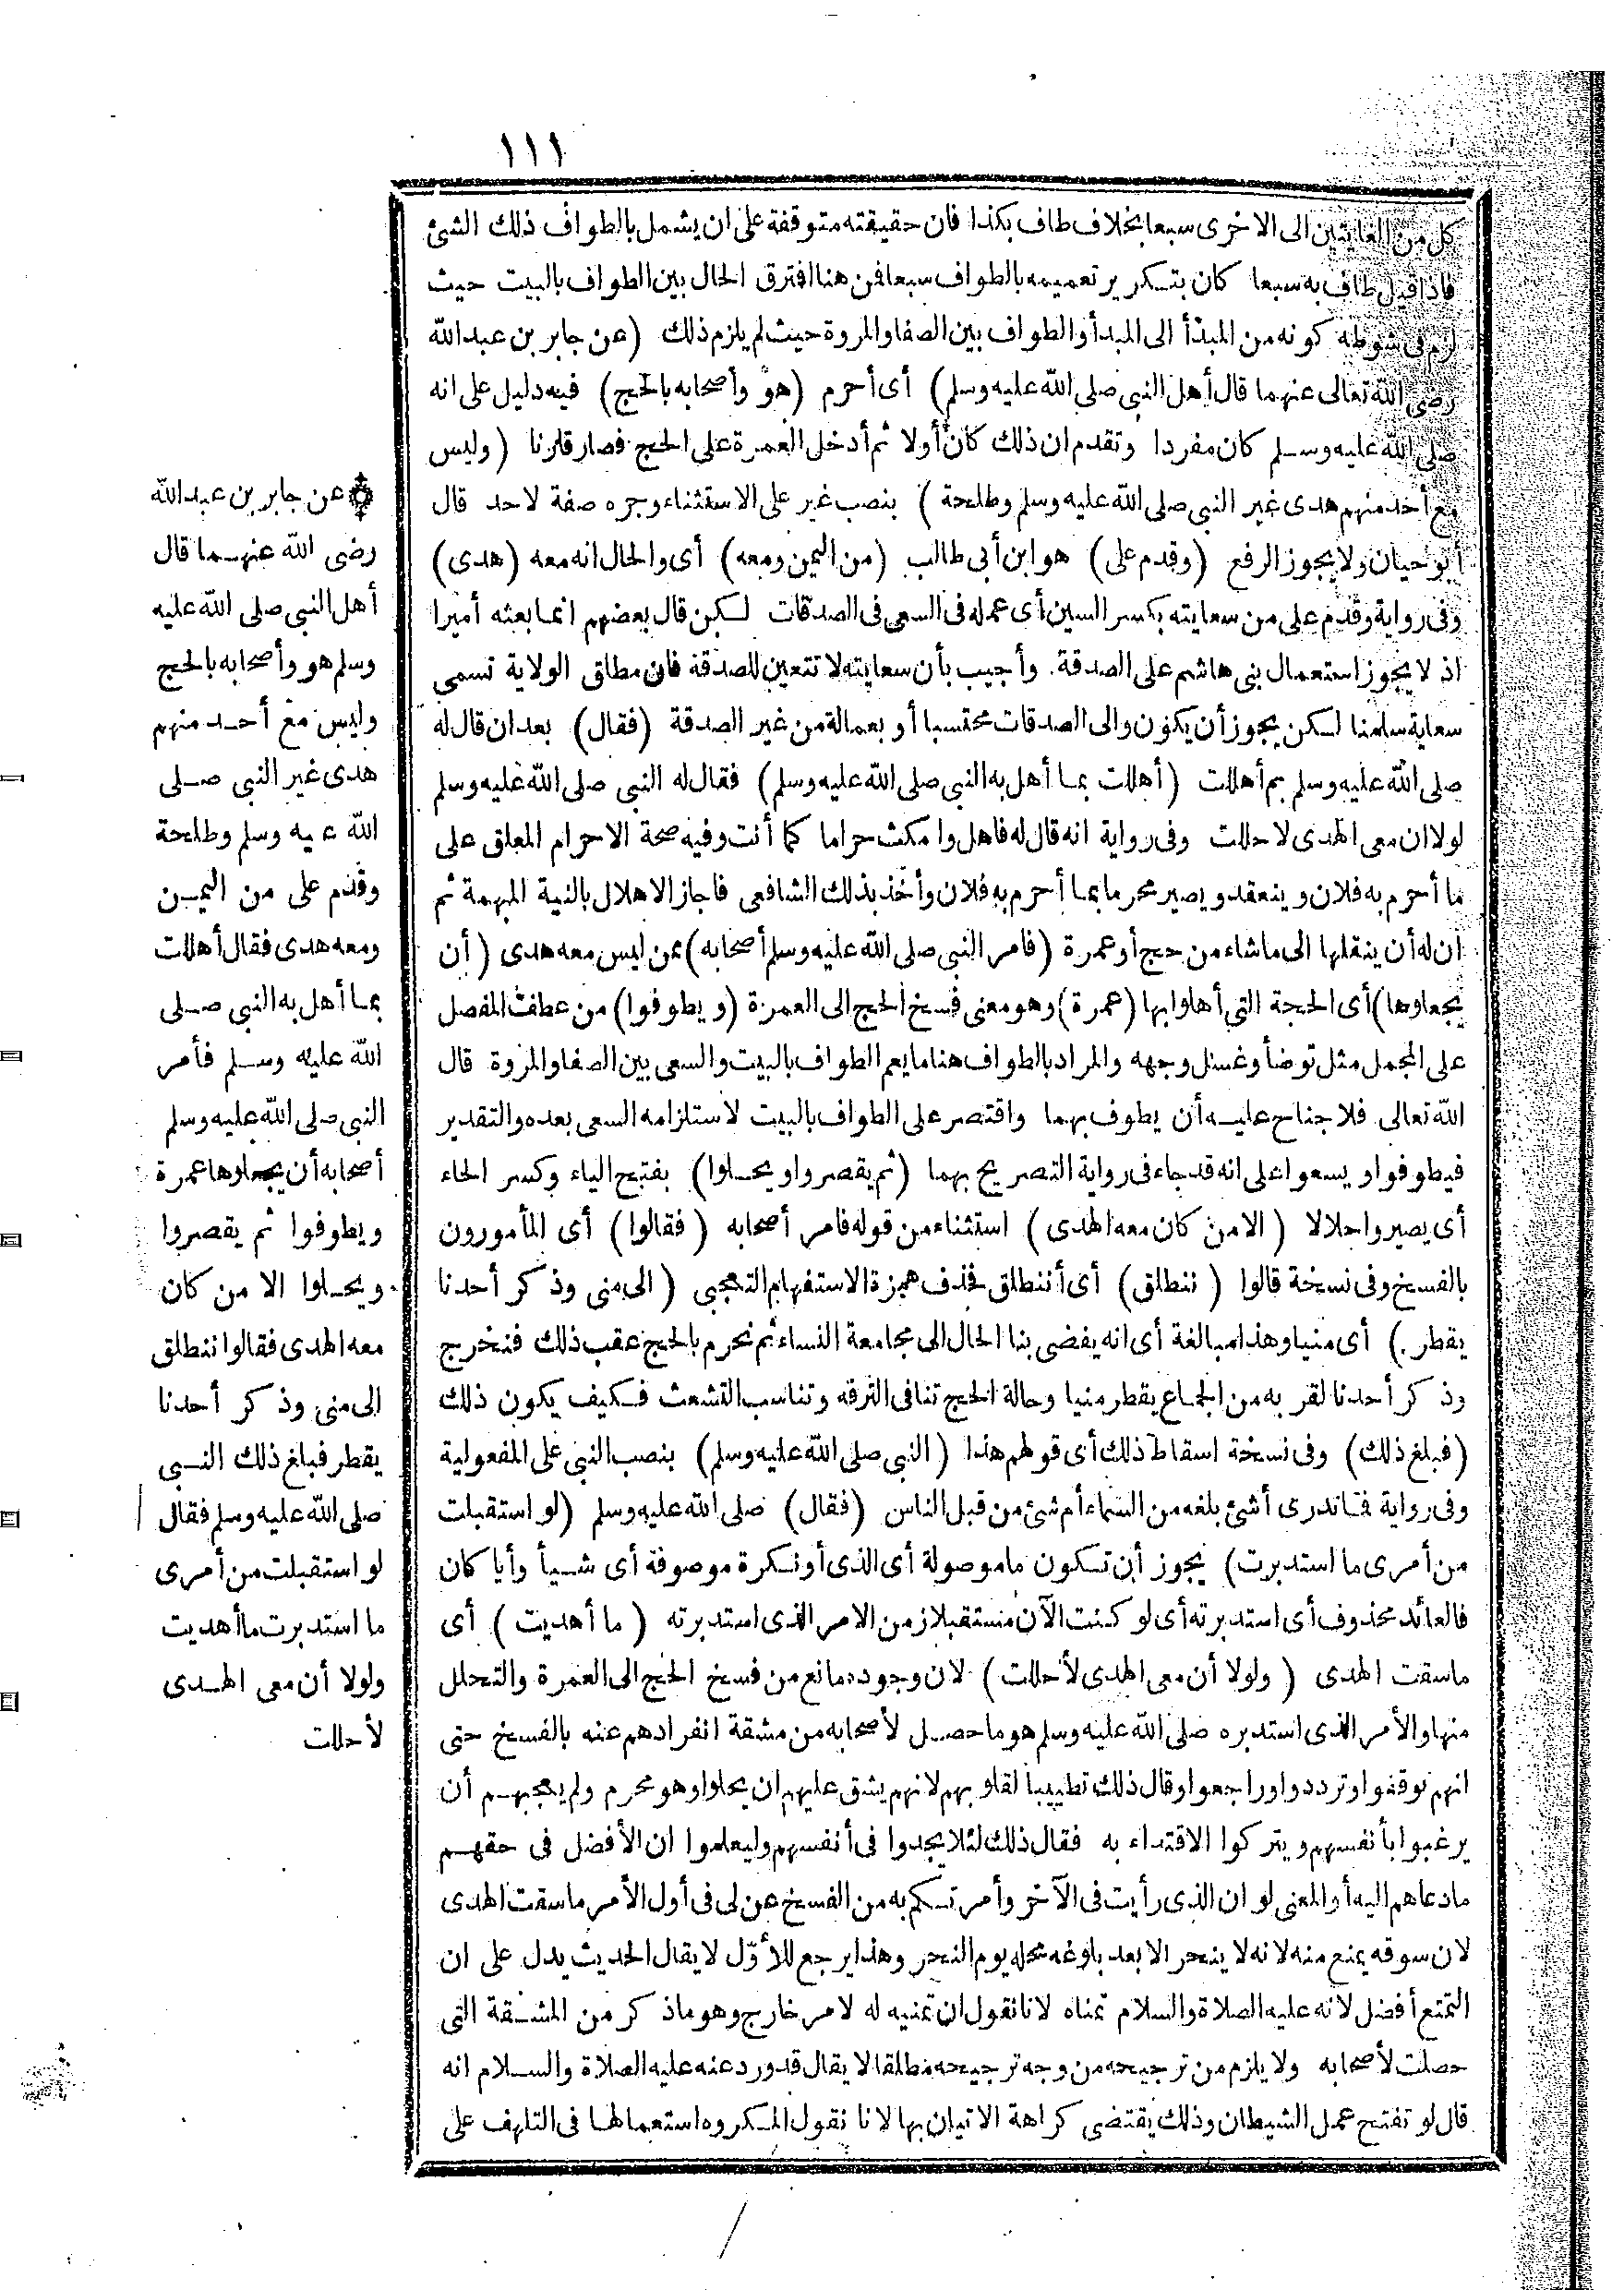 ١١١
كل من الغايتين الى الاخرى سبعا بخلاف طاف بكذا فان حقيقته متوقفة على ان يشمل بالطواف ذلك الشئ
فاذا قيل طاف به سبعا كان بتكرير تعميمه بالطواف سبعا فمن هنا افترق الحال بين الطواف بالبيت حيث
لزم فى شوطه كونه من المبدأ الى المبدأ والطواف بين الصفا والمروة حيث لم يلزم ذلك (عن جابر بن عبد الله
رضى الله تعالى عنهما قال أهل النبى صلى الله عليه وسلم) أى أحرم (هو وأصحابه بالحج) فيه دليل على انه
صلى الله عليه وسلم كان مفردا وتقدم ان ذلك كان أولا ثم أدخل العمرة على الحج فصار قارنا (وليس
مع أحد منهم هدى غير النبى صلى الله عليه وسلم وطلحة) بنصب غير على الاستثناء وجره صفة لاحد قال
أبو حيان ولا يجوز الرفع (وقدم على) هو ابن أبى طالب (من اليمن ومعه) أى والحال انه معه (هدى)
وفى رواية وقدم على من سعايته بكسر السين أى عمله فى السعى فى الصدقات لكن قال بعضهم انما بعثه أميرا
اذ لا يجوز استعمال بنى هاشم على الصدقة. وأجيب بأن سعايته لا تتعين للصدقة فان مطلق الولاية تسمى
سعاية سلمنا لكن يجوز أن يكون والى الصدقات محتسبا أو بعمالة من غير الصدقة (فقال) بعد ان قال له
صلى الله عليه وسلم بم أهللت (أهللت بما أهل به النبى صلى الله عليه وسلم) فقال له النبى صلى الله عليه وسلم
لولا ان معى الهدى لاحللت وفى رواية انه قال له فاهل وامكث حراما كما أنت وفيه صحة الاحرام المعلق على
ما أحرم به فلان وينعقد ويصير محرما بما أحرم به فلان وأخذ بذلك الشافعى فاجاز الاهلال بالنية المبهمة ثم
ان له أن ينقلها الى ماشاء من حج أو عمرة (فامر النبى صلى الله عليه وسلم أصحابه) ممن ليس معه هدى (أن
يجعلوها) أى الحجة التى أهلوا بها (عمرة) وهو معنى فسخ الحج الى العمرة (ويطوفوا) من عطف المفصل
على المجمل مثل توضأ وغسل وجهه والمراد بالطواف هنا ما يعم الطواف بالبيت والسعى بين الصفا والمروة قال
الله تعالى فلا جناح عليه أن يطوف بهما واقتصر على الطواف بالبيت لاستلزامه السعى بعده والتقدير
فيطوفوا ويسعوا على انه قد جاء فى رواية التصريح بهما (ثم يقصروا ويحلوا) بفتح الياء وكسر الحاء
أى يصيروا حلالا (الا من كان معه الهدى) استثناء من قوله فامر أصحابه (فقالوا) أى المأمورون
بالفسخ وفى نسخة قالوا (ننطلق) أى أننطلق فحذف همزة الاستفهام التعجبى (الى منى وذكر أحدنا
يقطر) أى منيا وهذا مبالغة أى انه يفضى بنا الحال الى مجامعة النساء ثم نحرم بالحج عقب ذلك فنخرج
وذكر أحدنا لقربه من الجماع يقطر منيا وحالة الحج تنافى الترفه وتناسب التشعث فكيف يكون ذلك
(فبلغ ذلك) وفى نسخة اسقاط ذلك أى قولهم هذا (النبى صلى الله عليه وسلم) بنصب النبى على المفعولية
وفى رواية فما ندرى أشئ بلغه من السماء أم شئ من قبل الناس (فقال) صلى الله عليه وسلم (لو استقبلت
من أمرى ما استدبرت) يجوز أن تكون ما موصولة أى الذى أو نكرة موصوفة أى شيأ وأيا كان
فالعائد محذوف أى استدبرته أى لو كنت الآن مستقبلا زمن الامر الذى استدبرته (ما أهديت) أى
ماسقت الهدى (ولولا أن معى الهدى لأحللت) لان وجوده مانع من فسخ الحج الى العمرة والتحلل
منها والأمر الذى استدبره صلى الله عليه وسلم هو ما حصل لأصحابه من مشقة انفرادهم عنه بالفسخ حتى
انهم توقفوا وترددوا وراجعوا وقال ذلك تطييبا لقلوبهم لانهم يشق عليهم ان يحلوا وهو محرم ولم يعجبهم أن
يرغبوا بأنفسهم ويتركوا الاقتداء به فقال ذلك لئلا يجدوا فى أنفسهم وليعلموا ان الأفضل فى حقهم
مادعاهم اليه أو المعنى لو ان الذى رأيت فى الآخر وأمرتكم به من الفسخ عن لى فى أول الأمر ماسقت الهدى
لان سوقه يمنع منه لانه لا ينحر الا بعد بلوغه محله يوم النحر وهذا يرجع للأوّل لا يقال الحديث يدل على ان
التمتع أفضل لانه عليه الصلاة والسلام تمناه لانا نقول ان تمنيه له لامر خارج وهو ماذكر من المشقة التى
حصلت لأصحابه ولا يلزم من ترجيحه من وجه ترجيحه مطلقا لا يقال قد ورد عنه عليه الصلاة والسلام انه
قال لو تفتح عمل الشيطان وذلك يقتضى كراهة الاتيان بها لانا نقول المكروه استعمالها فى التلهف على
عن جابر بن عبد الله
رضى الله عنهما قال
أهل النبى صلى الله عليه
وسلم هو وأصحابه بالحج
وليس مع أحد منهم
هدى غير النبى صلى
الله عيه وسلم وطلحة
وقدم على من اليمن
ومعه هدى فقال أهللت
بما أهل به النبى صلى
الله عليه وسلم فأمر
النبى صلى الله عليه وسلم
أصحابه أن يجعلوها عمرة
ويطوفوا ثم يقصروا
ويحلوا الا من كان
معه الهدى فقالوا ننطلق
الى منى وذكر أحدنا
يقطر فبلغ ذلك النبى
صلى الله عليه وسلم فقال
لو استقبلت من أمرى
ما استدبرت ما أهديت
ولولا أن معى الهدى
لأحللت